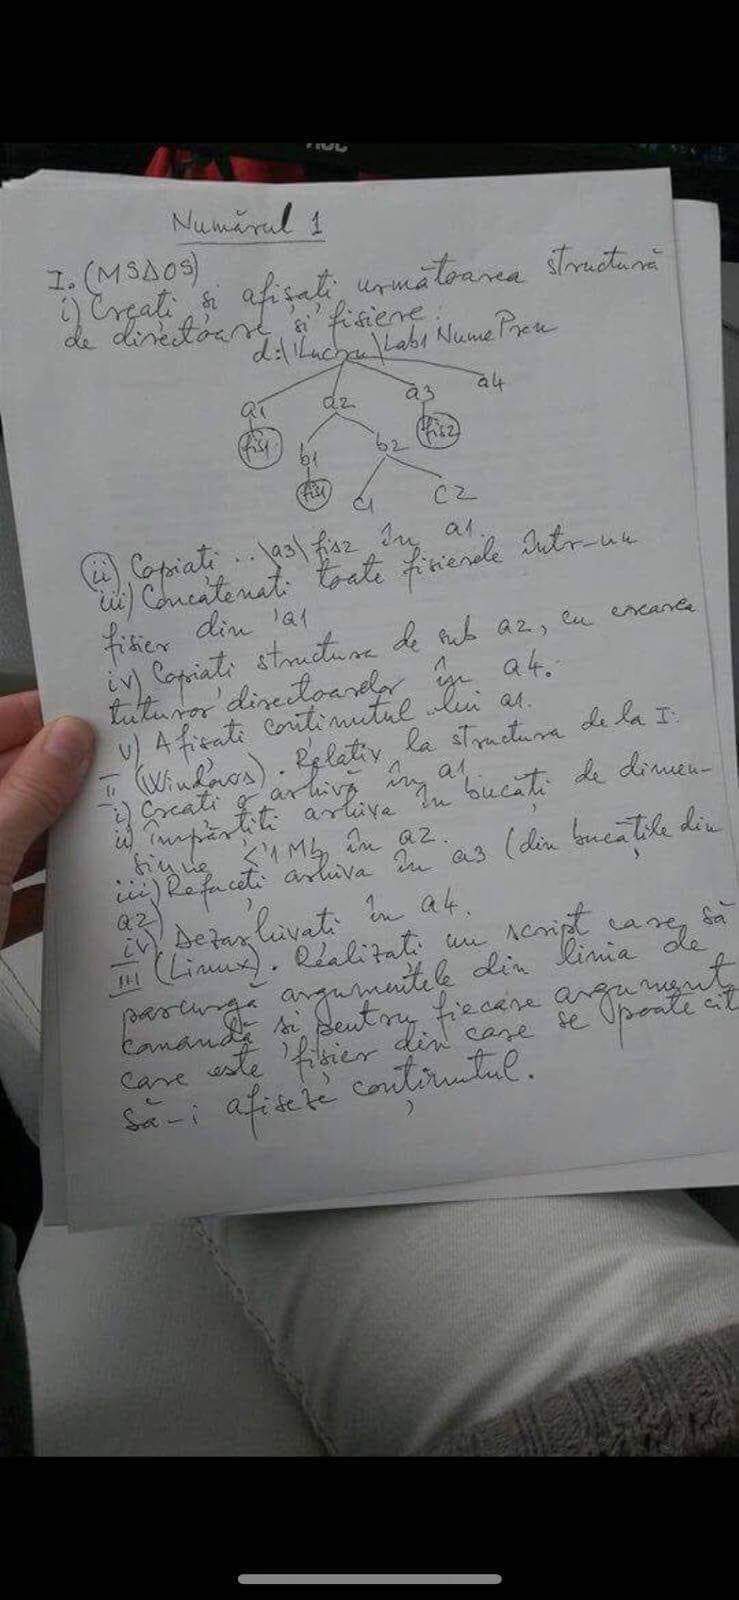 AOC
Numărul 1
I. (MSDOS)
i) Creați și afișați următoarea structură
de directoare și fișiere:
d:\Lucru\Lab1 Nume Pren
a1 a2 a3 a4
fis1 b1 b2 fis2
fis1 c1 c2
ii) Copiați ..\a3\fis2 în a1.
iii) Concatenați toate fișierele într-un
fișier din a1
iv) Copiați structura de sub a2, cu crearea
tuturor directoarelor în a4.
v) Afișați conținutul lui a1.
II (Windows). Relativ la structura de la I:
i) Creați o arhivă în a1
ii) Împărțiți arhiva în bucăți de dimen-
siune <1 Mb în a2.
iii) Refaceți arhiva în a3 (din bucățile din
a2)
iv) Dezarhivați în a4.
III (Linux). Realizați un script care să
parcurgă argumentele din linia de
comandă și pentru fiecare argument
care este fișier din care se poate cit
să-i afișeze conținutul.